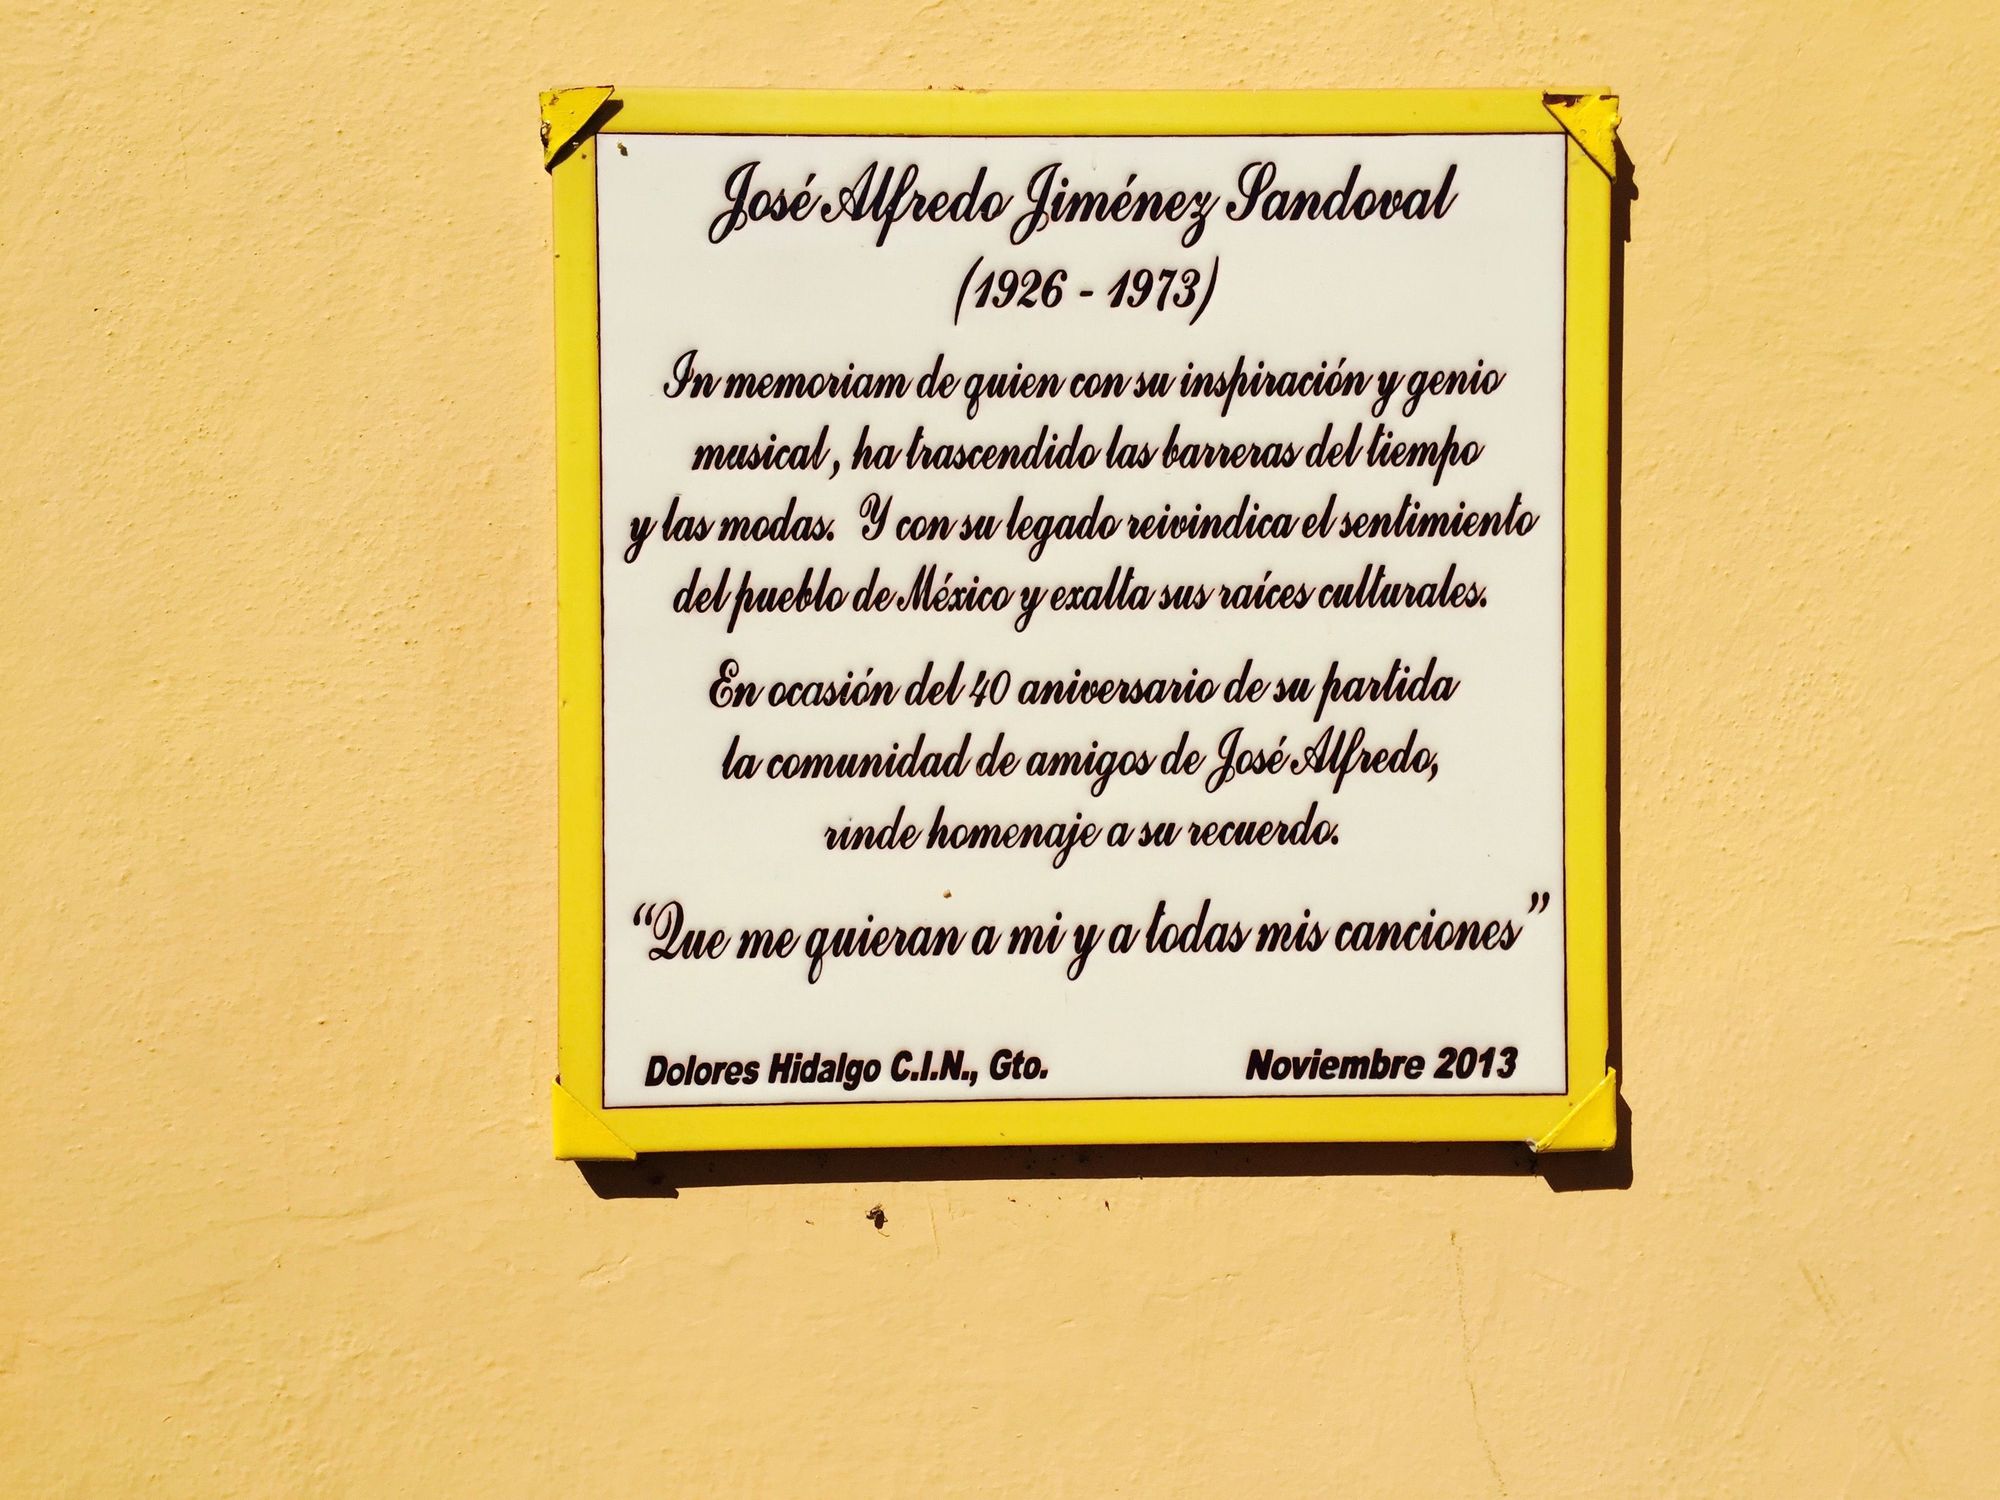 José Alfredo Jiménez Sandoval
(1926 - 1973)
In memoriam de quien con su inspiración y genio
musical, ha trascendido las barreras del tiempo
y las modas. Y con su legado reivindica el sentimiento
del pueblo de México y exalta sus raíces culturales.
En ocasión del 40 aniversario de su partida
la comunidad de amigos de José Alfredo,
rinde homenaje a su recuerdo.
“Que me quieran a mi y a todas mis canciones”
Dolores Hidalgo C.I.N., Gto. Noviembre 2013